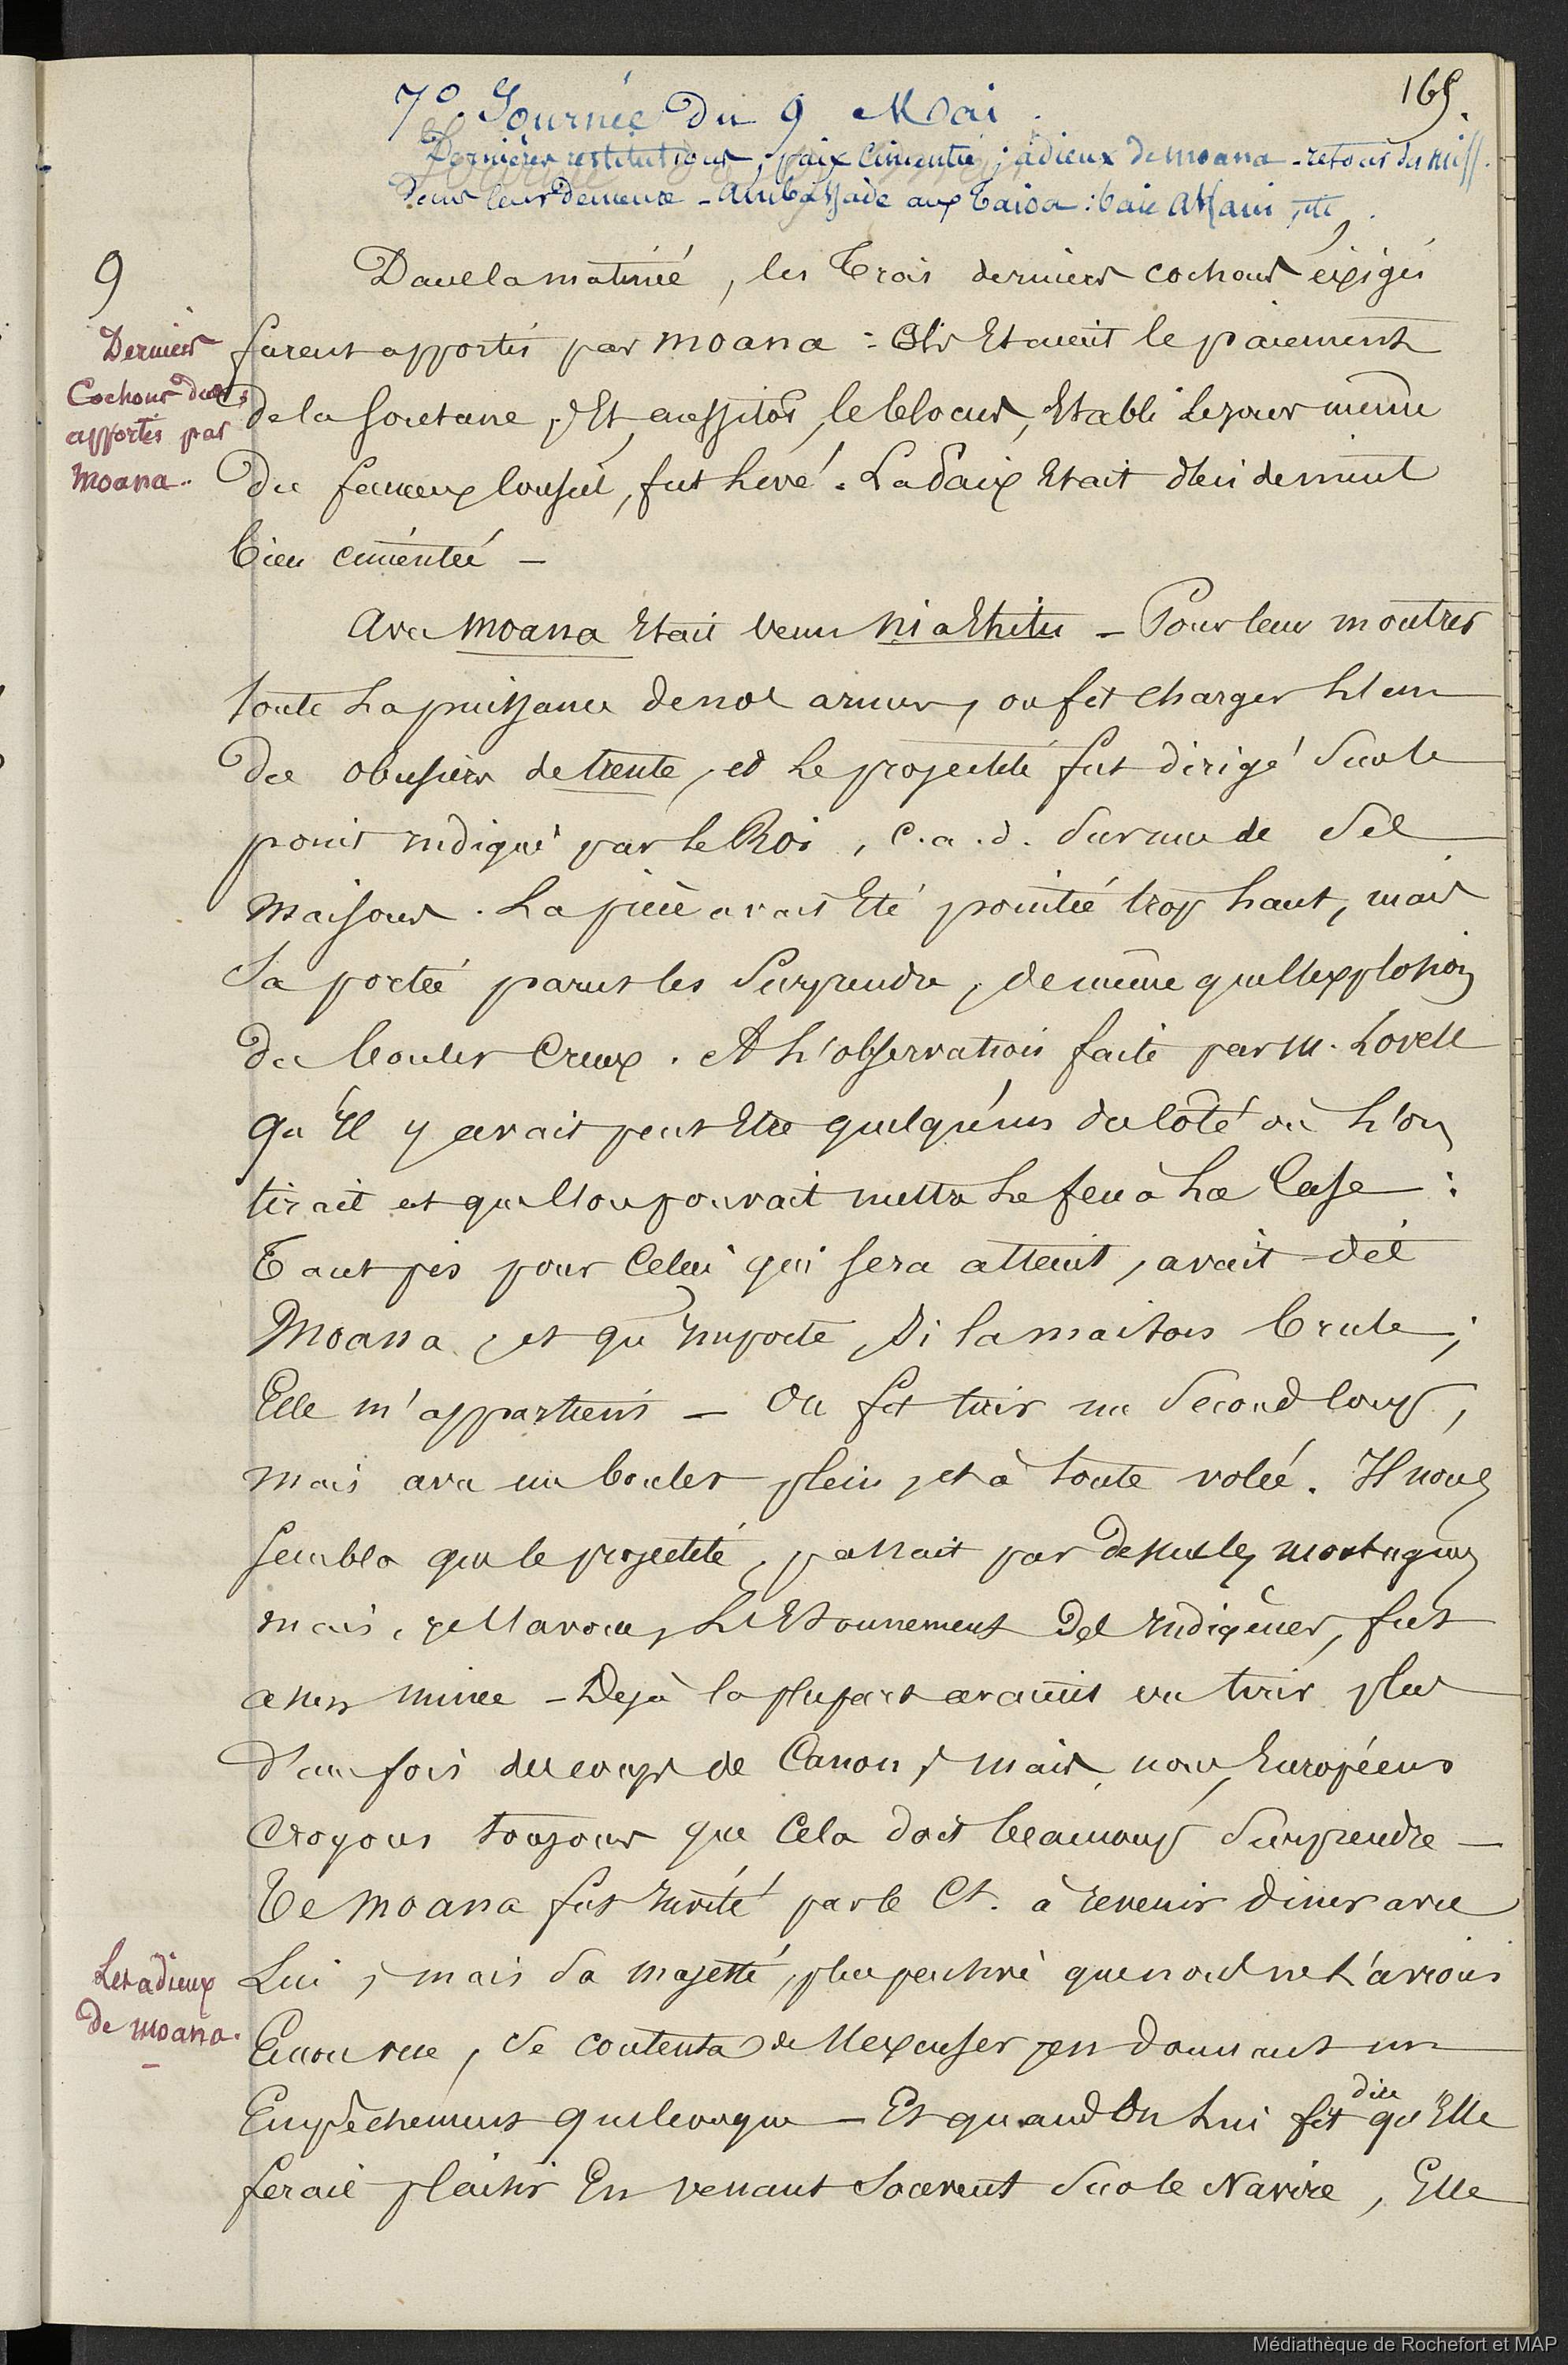 165.
7° Journée du 9 Mai.
Dernières restitutions ; paix cimentée ; adieux de moana - retour des miss.
dans leur demeure - ambassade aux Taïoa : baie akani, etc.
9
Dans la matinée, les Trois derniers cochons exigés
Derniers
Cochons dus,
apportés par
Moana.
furent apportés par moana : Ils Etaient le paiement
de la soutane ; Et aussitôt, le blocus, Etabli le jour même
du fameux conseil, fut levé. La Paix Etait décidément
bien cimentée —
Avec Moana Etait venu Niahitu — Pour leur montrer
toute la puissance de nos armes, on fit charger l'un
des obusiers de trente, et le projectile fut dirigé sur le
point indiqué par le Roi, c.a.d. sur une de ses
maisons. La pièce avait Eté pointée trop haut, mais
sa portée parut les surprendre, de même que l'explosion
du boulet creux. A l'observation faite par M. Lovell
qu'Il y avait peut Etre quelqu'un du côté où l'on
tirait et que l'on pouvait mettre le feu à la Case :
Tant pis pour Celui qui sera atteint, avait dit
Moana, et qu'importe, si la maison brule ;
Elle m'appartient — On fit tirer un second coup,
mais avec un boulet plein, et à toute volée. Il nous
sembla que le projectile, passait par dessus les montagnes
mais, je l'avoue, l'Etonnement des Indigènes, fut
assez mince — Dejà la plupart avaient vu tirer plus
d'une fois des coups de Canon ; mais, nous, Européens
croyons toujours que Cela doit beaucoup surprendre —
Te Moana fut Invité par le Ct. à revenir diner avec
Les adieux
de moana.
Lui ; mais sa majesté, plus pensive que nous ne l'avions
Encore vue, se contenta de s'excuser en donnant un
Empêchement quelconque — Et quand On Lui fit dire qu'Elle
ferait plaisir En venant souvent sur le Navire, Elle
Médiathèque de Rochefort et MAP